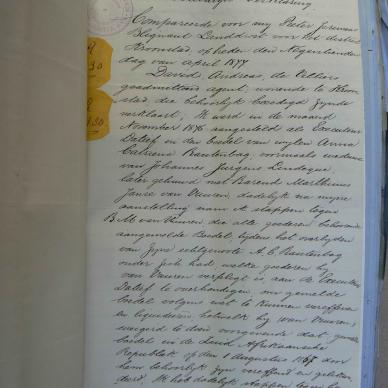 Compareerde voor my Pieter Jeremia
Blignault Landdrost voor het district
Kroonstad, op heden den Negentienden
dag van April 1877
David Andreas de Villiers
geadmitteerd agent, wonende te Kroon
stad die behoorlyk beedigd zynde
verklaart; Ik werd in de maand
November 1876 aangesteld als Executeur
Datief in den boedel van wylen Anna
Catriena Rautenbag voormaals weduwe
van Johannes Jurgens Lindeque
later gehuwd met Barend Marthinus
Janse van Vuuren, dadelyk na myne
aanstelling nam ik stappen tegen
B. M. van Vuuren die alle goederen behoorende
aangemelde Boedel, tydens het overlyden
van zyne echtgenote A. C. Rautenbag
onder zich had welke goederen hy
van Vuuren verpligt is, aan de Executeur
Datief te overhandigen om gemelde
boedel volgens wet te kunnen redderen
en liquideeren hetwelk hy van Vuuren,
weigerd te doen voorgevende dat gemelde
boedel in de Zuid Afrikaansche
Republiek op den 1 Augustus 1867 door
hem behoorlyk zyn vereffend en geliqui
deerd. Ik heb dadelyk stappen